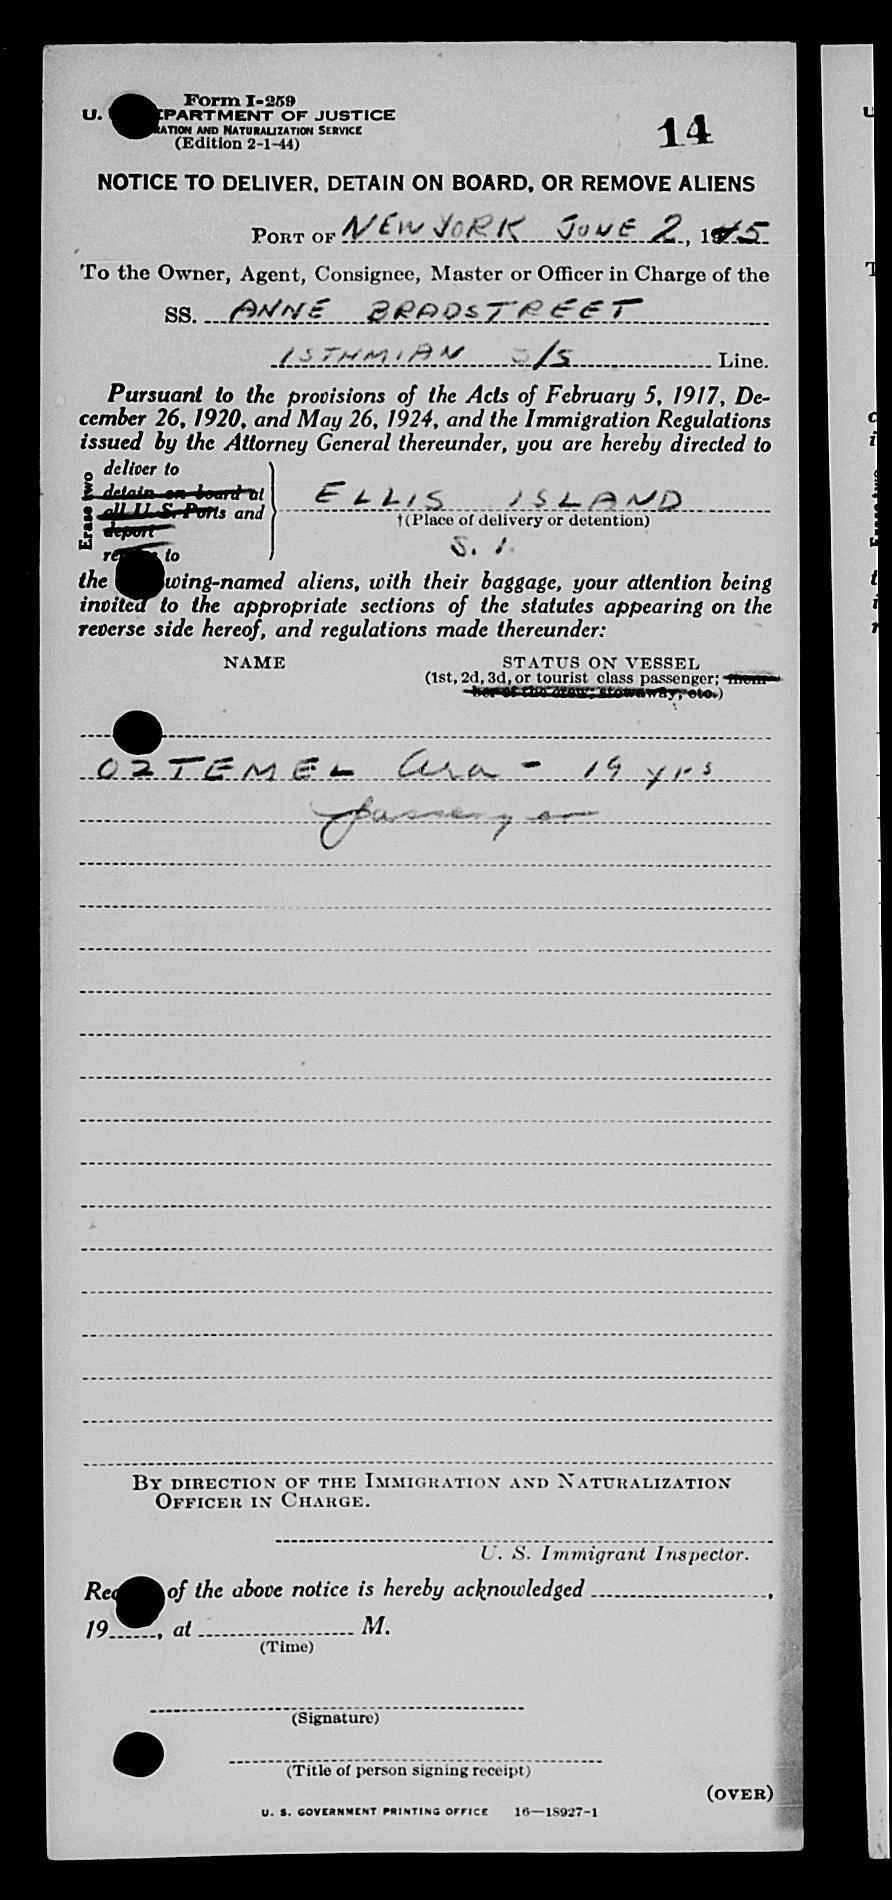 Form I-259
U. DEPARTMENT OF JUSTICE
ATION AND NATURALIZATION SERVICE
(Edition 2-1-44)
14
NOTICE TO DELIVER, DETAIN ON BOARD, OR REMOVE ALIENS
PORT OF NEW YORK JUNE 2, 1945
To the Owner, Agent, Consignee, Master or Officer in Charge of the
SS. ANNE BRADSTREET
ISTHMIAN S/S Line.
Pursuant to the provisions of the Acts of February 5, 1917, De-
cember 26, 1920, and May 26, 1924, and the Immigration Regulations
issued by the Attorney General thereunder, you are hereby directed to
Erase two
deliver to
detain on board at
all U. S. Ports and
deport
to
ELLIS ISLAND
†(Place of delivery or detention)
S. I.
the wing-named aliens, with their baggage, your attention being
invited to the appropriate sections of the statutes appearing on the
reverse side hereof, and regulations made thereunder:
NAME STATUS ON VESSEL
(1st, 2d, 3d, or tourist class passenger; mem-
ber of the crew; stowaway, etc.)
OZTEMEL Ara - 19 yrs
passenger
BY DIRECTION OF THE IMMIGRATION AND NATURALIZATION
OFFICER IN CHARGE.
U. S. Immigrant Inspector.
Rec of the above notice is hereby acknowledged ,
19 , at M.
(Time)
(Signature)
(Title of person signing receipt)
(OVER)
U. S. GOVERNMENT PRINTING OFFICE 16—18927-1